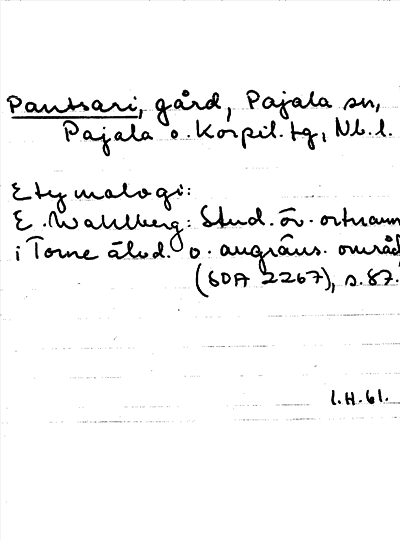 Pantsari, gård, Pajala sn,
Pajala o. Korpil. tg, Nb. l.
Etymologi:
E. Wahlberg: Stud. öv. ortnamn
i Torne älvd. o. angräns. områd
(SOA 2267), s. 87.
I.H. 61.